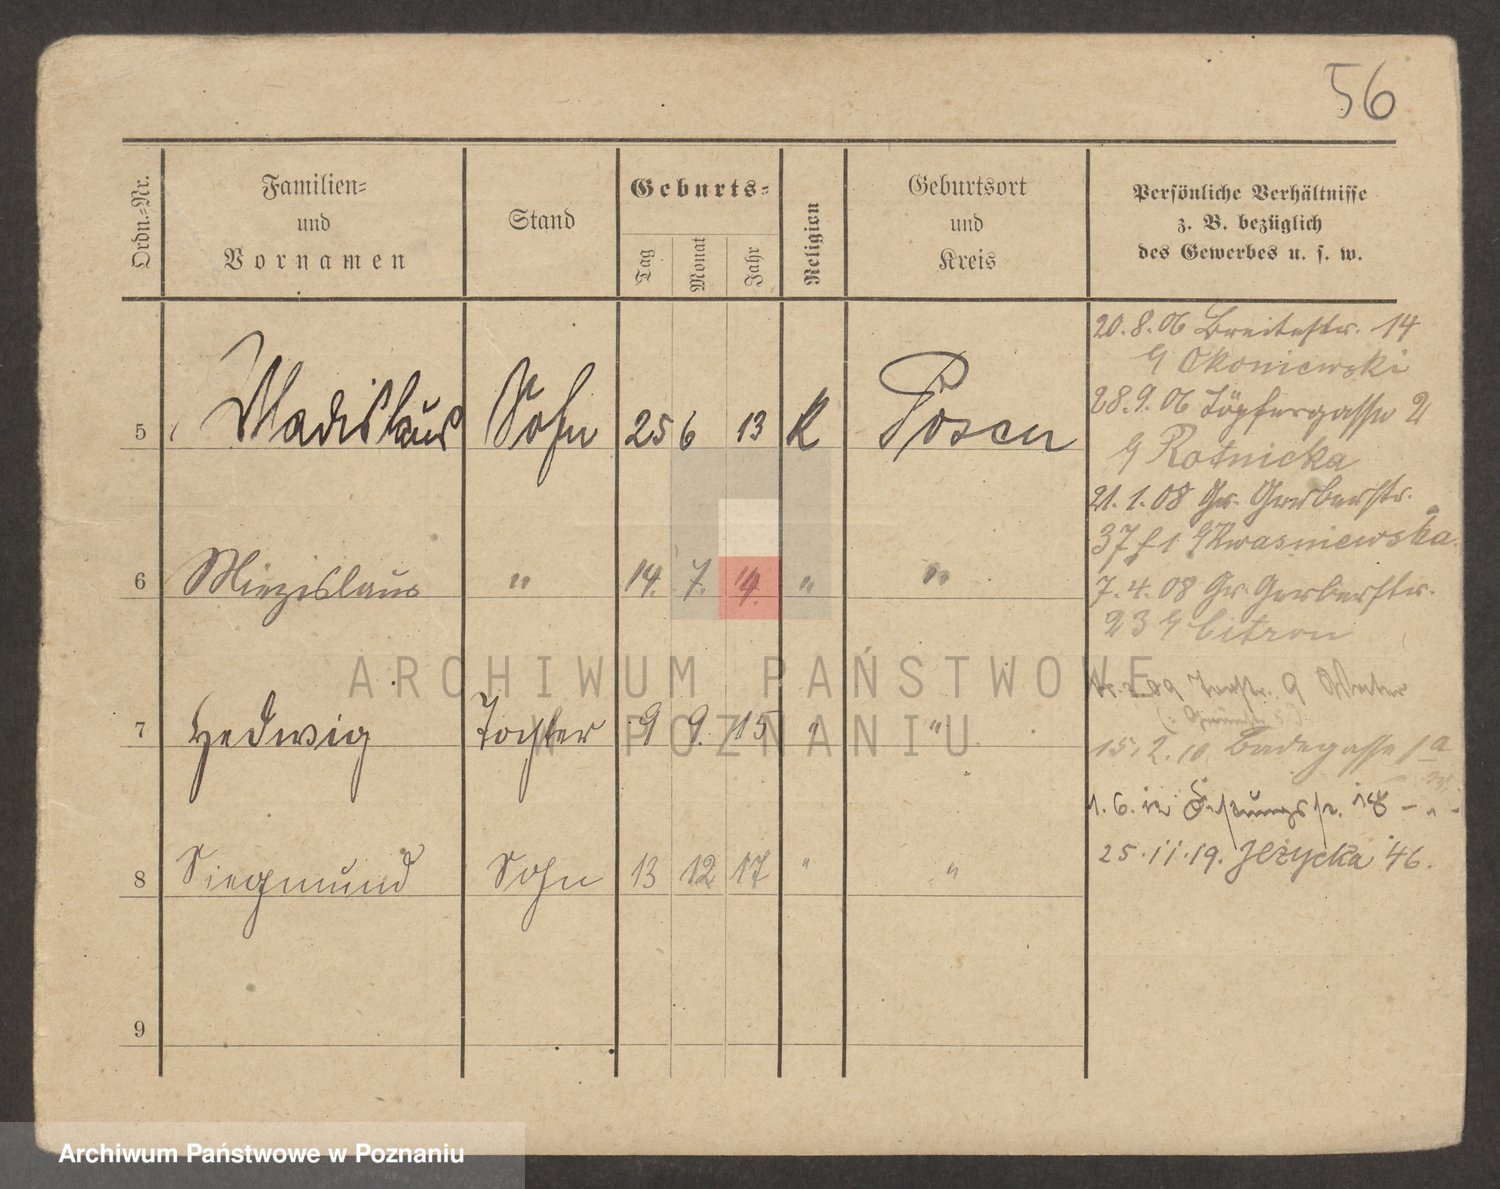 56
Ordn.-Nr.
Familien-
und
Vornamen
Stand
Geburts-
Tag
Monat
Jahr
Religion
Geburtsort
und
Kreis
Persönliche Verhältnisse
z. B. bezüglich
des Gewerbes u. s. w.
5 Wladislaus Sohn 25 6 13 K Posen
6 Miezislaus " 14. 7. "
7 Hedwig Tochter 9 9. 15 " "
8 Siegmund Sohn 13 12 17 " "
9
20.8.06 Breitestr. 14
Okoniewski
28.9.06 Töpfergasse 2
Rotnicka
21.1.08 Gr. Gerberstr.
37 Kwasniewska
7.4.08 Gr. Gerberstr.
23 Citron
09
15.2.10 Badegasse 1a
1.6.12 18 - " -
25.11.19. Jeżycka 46.
ARCHIWUM PAŃSTWOWE
W POZNANIU
Archiwum Państwowe w Poznaniu